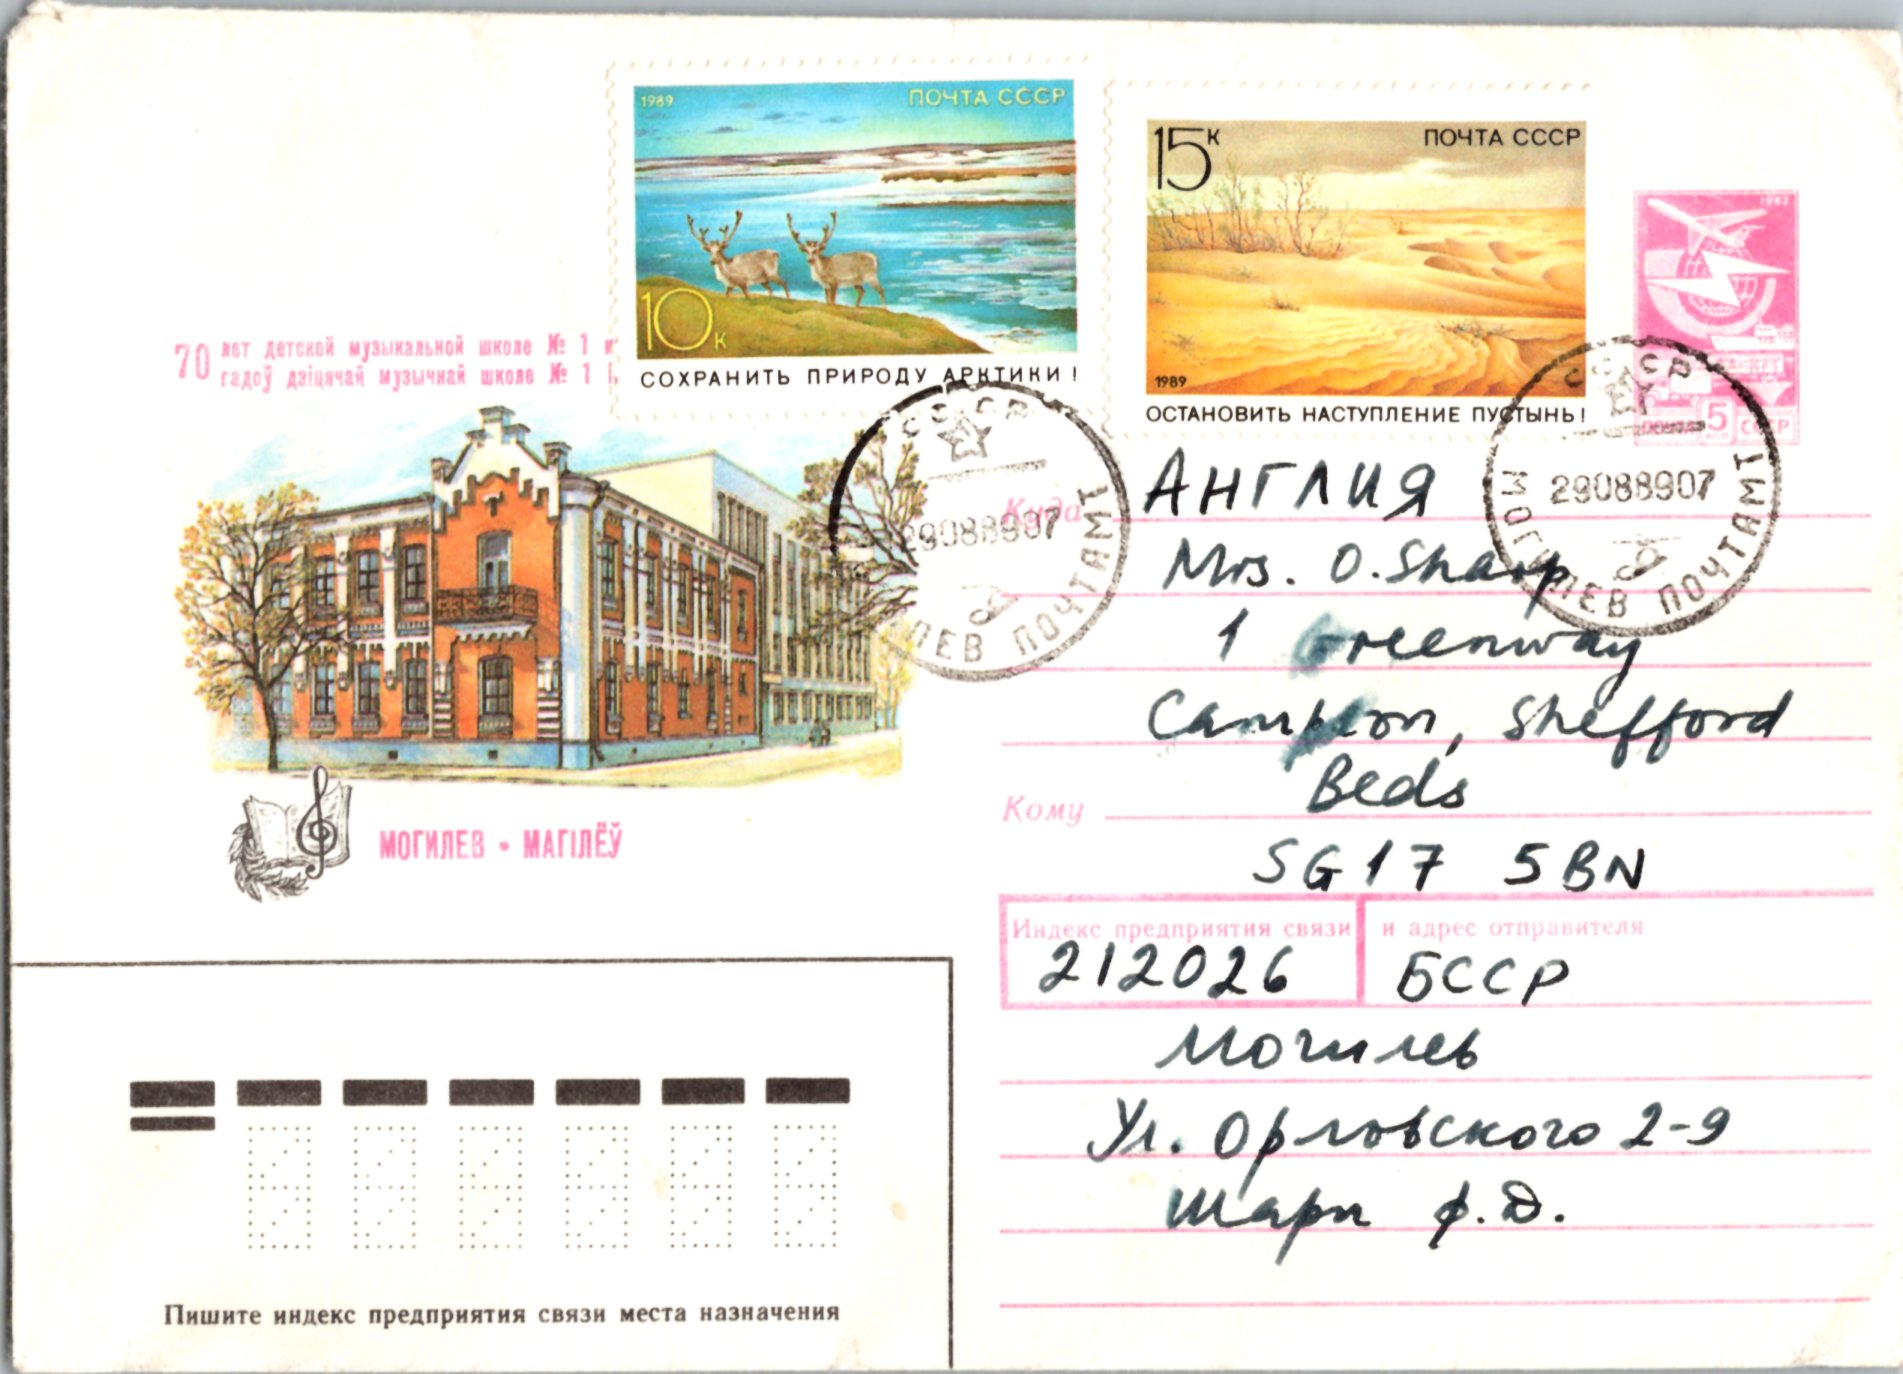 1989 ПОЧТА СССР
10 К
СОХРАНИТЬ ПРИРОДУ АРКТИКИ!
15 К ПОЧТА СССР
1989
ОСТАНОВИТЬ НАСТУПЛЕНИЕ ПУСТЫНЬ!
1982
5 КОП СССР
70 лет детской музыкальной школе № 1
гадоў дзіцячай музычнай школе № 1
МОГИЛЕВ • МАГІЛЁЎ
СССР
29088907
ЛЕВ ПОЧТАМТ
СССР
29088907
МОГИЛЕВ ПОЧТАМТ
Куда АНГЛИЯ
Mrs. O. Sharp
1 Greenway
Campton, Shefford
Beds
Кому
SG17 5BN
Индекс предприятия связи и адрес отправителя
212026 БССР
Могилев
Ул. Орловского 2-9
Шарп Ф.Д.
Пишите индекс предприятия связи места назначения